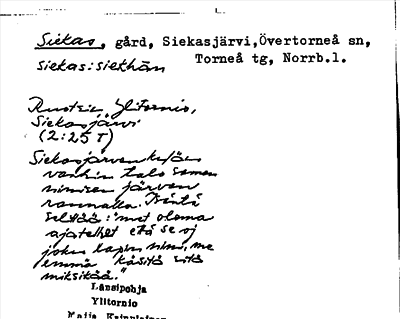 Siekas, gård, Siekasjärvi, Övertorneå sn,
Siekas: siekhän Torneå tg, Norrb.l.
Ruotsin Ylitornio,
Siekasjärvi
(2:25 T)
Siekasjärven kylän
vanhin talo saman
nimisen järven
rannalla. Isäntä
selittää: "met olema
ajatelhet että se oj
joku lapin nimi, me
emmä käsitä sitä
miksikää."
Länsipohja
Ylitornio
Maija